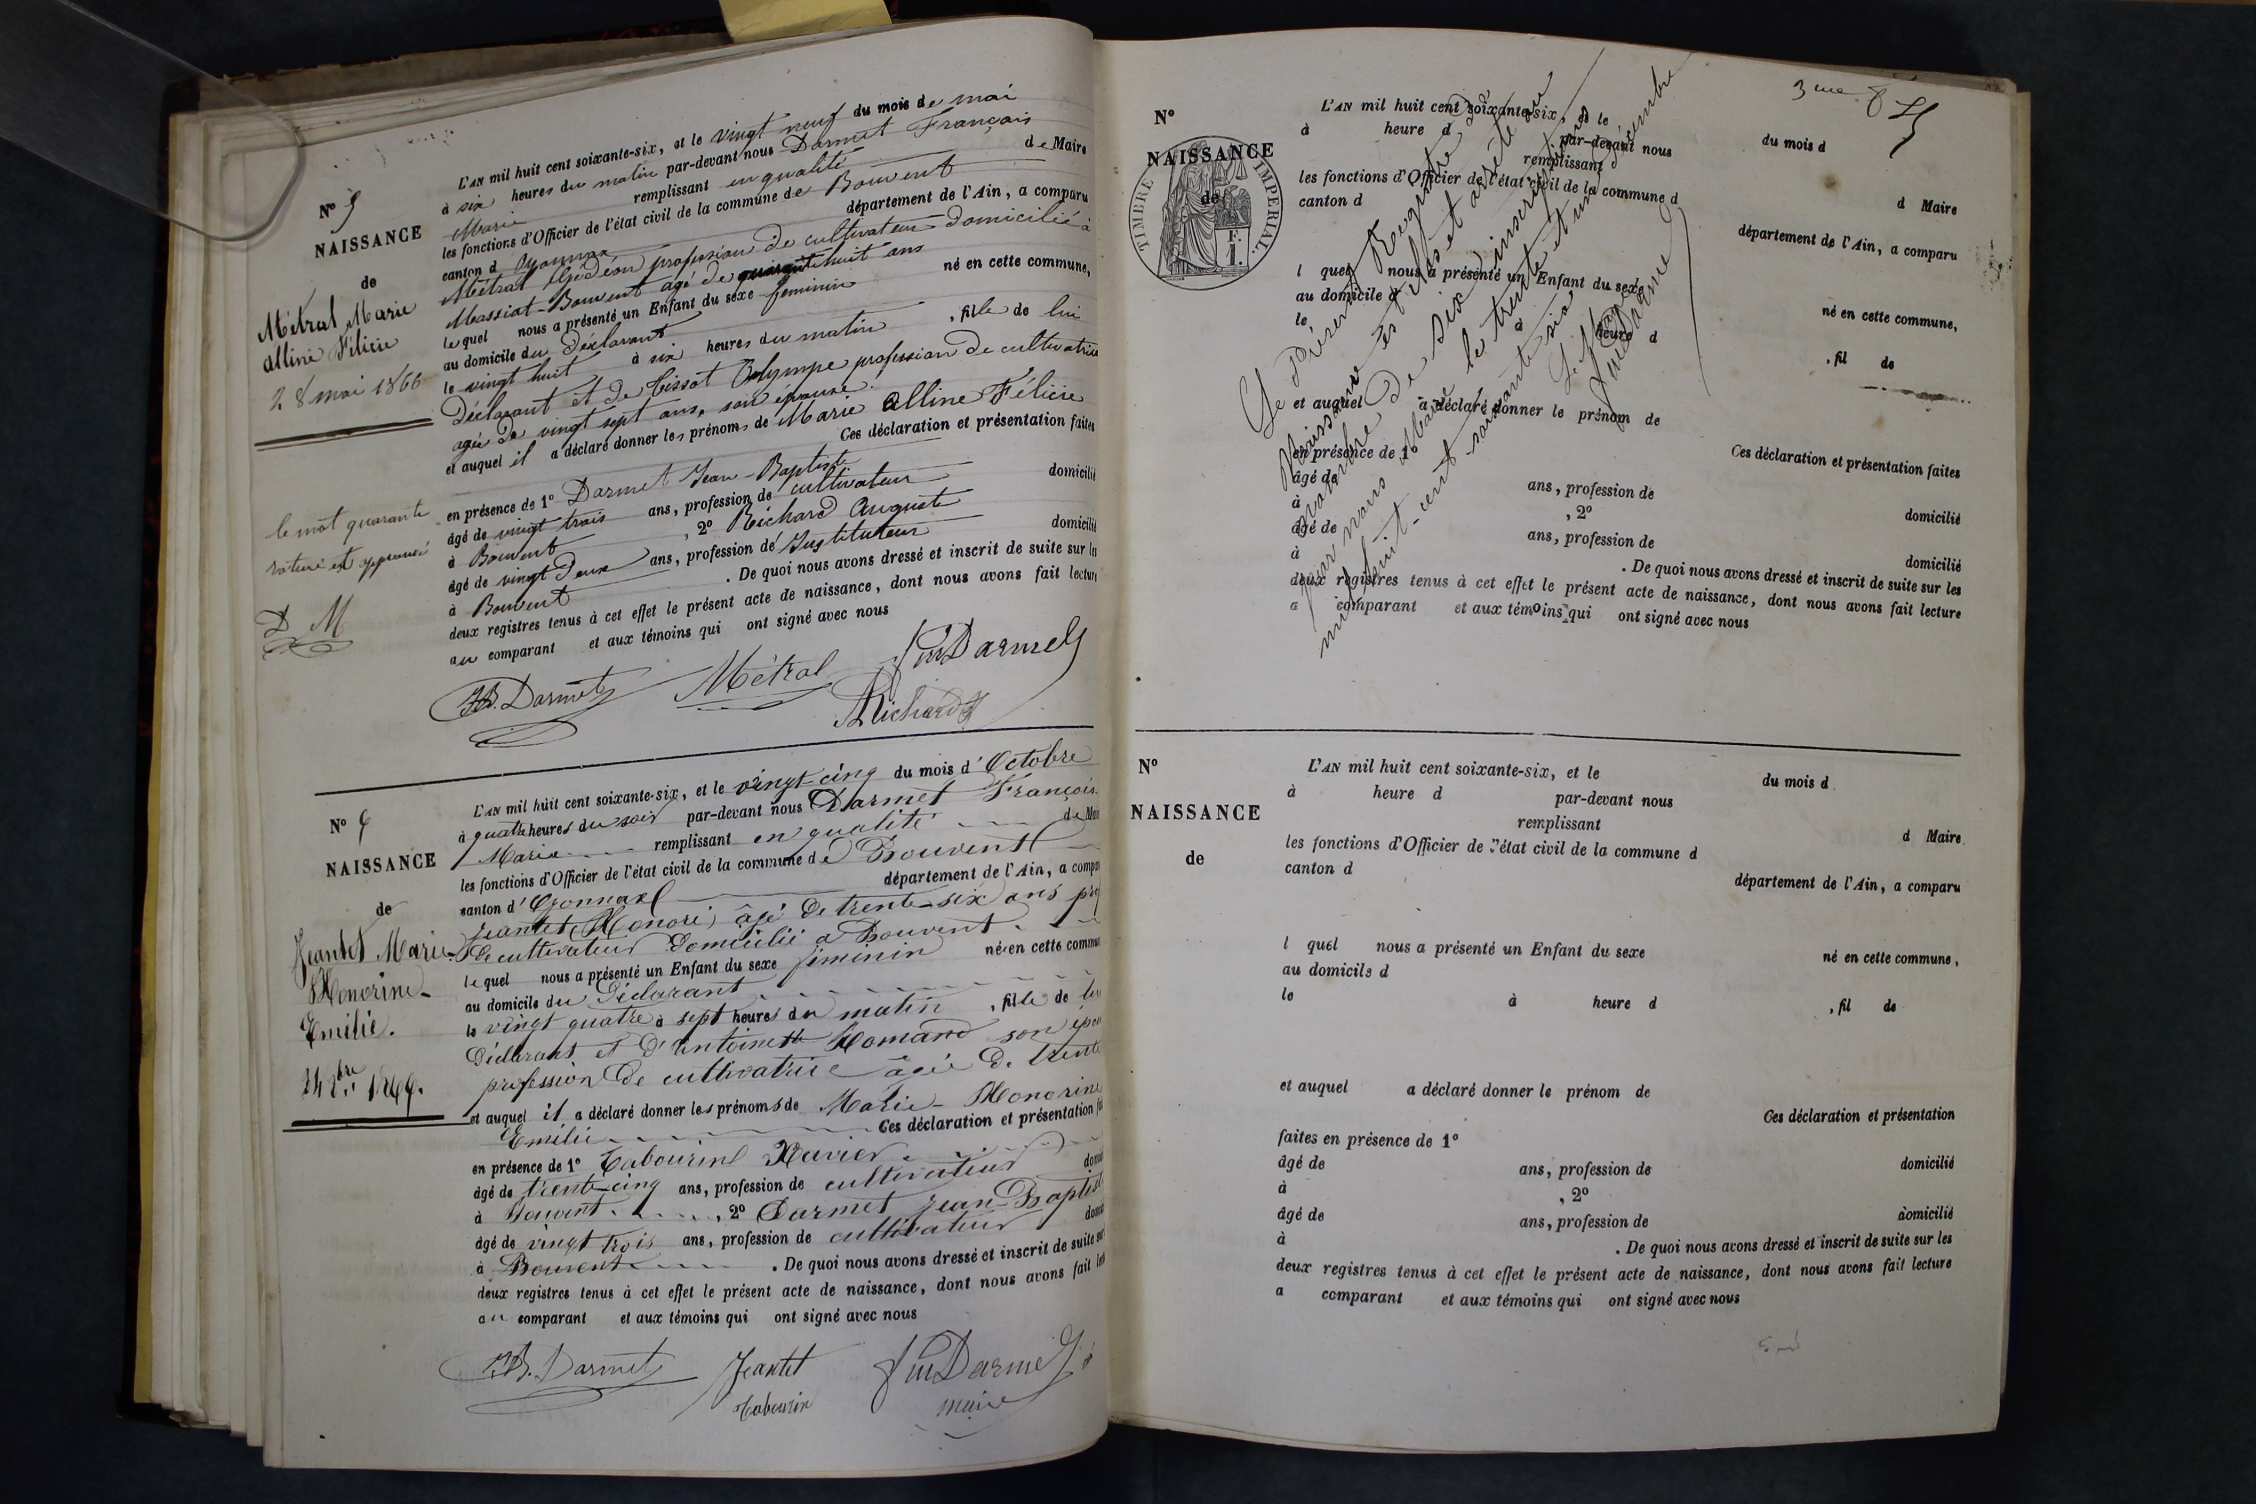 L'AN mil huit cent soixante-six, et le vingt neuf du mois de mai
à six heures du matin par-devant nous Darmet François
Marie remplissant en qualité de Maire
les fonctions d'Officier de l'état civil de la commune de Bouvent
canton d'Oyonnax département de l'Ain, a comparu
Métral Gédéon profession de cultivateur domicilié à
Massiat-Bouvent agé de quarante huit ans
lequel nous a présenté un Enfant du sexe feminin né en cette commune,
au domicile du Déclarant
le vingt huit à six heures du matin, fille de lui
Déclarant et de Tissot Olympe profession de cultivatrice
agée de vingt sept ans, son épouse.
et auquel il a déclaré donner les prénoms de Marie Alline Félicie
Ces déclaration et présentation faites
en présence de 1° Darmet Jean-Baptiste
âgé de vingt trois ans, profession de cultivateur domicilié
à Bouvent, 2° Richard Auguste
âgé de vingt deux ans, profession de Instituteur domicilié
à Bouvent. De quoi nous avons dressé et inscrit de suite sur les
deux registres tenus à cet effet le présent acte de naissance, dont nous avons fait lecture
au comparant et aux témoins qui ont signé avec nous
JB. Darmet Métral Darmet
Richard
N° 5
NAISSANCE
de
Métral Marie
Alline Félicie
28 mai 1866
le mot quarante
raturé est approuvé
D M
L'AN mil huit cent soixante-six, et le vingt-cinq du mois d'Octobre
à quatre heures du soir par-devant nous Darmet François
Marie remplissant en qualité de Mai
les fonctions d'Officier de l'état civil de la commune de Bouvent
canton d'Oyonnax département de l'Ain, a compa
Jeantet (Honoré) âgé de trente-six ans pro
de cultivateur domicilié à Bouvent.
lequel nous a présenté un Enfant du sexe féminin né en cette commu
au domicile du Déclarant
le vingt quatre à sept heures du matin, fille de lui
Déclarant et d'Antoinette Romand son épou
profession de cultivatrice âgée de trente
et auquel il a déclaré donner les prénoms de Marie-Honorine
Emilie Ces déclaration et présentation fai
en présence de 1° Tabourin Xavier
âgé de trente-cinq ans, profession de cultivateur domi
à Bouvent, 2° Darmet Jean-Baptist
âgé de vingt trois ans, profession de cultivateur domi
à Bouvent. De quoi nous avons dressé et inscrit de suite sur
deux registres tenus à cet effet le présent acte de naissance, dont nous avons fait lec
au comparant et aux témoins qui ont signé avec nous
JB. Darmet Jeantet Darmet
Tabourin maire
N°
NAISSANCE
de
Jeantet Marie-
Honorine-
Emilie.
3me
N°
NAISSANCE
de
TIMBRE IMPERIAL.
1 F.
L'AN mil huit cent soixante-six, et le du mois d
à heure d par-devant nous
remplissant d Maire
les fonctions d'Officier de l'état civil de la commune d
canton d département de l'Ain, a comparu
l quel nous a présenté un Enfant du sexe né en cette commune,
au domicile d
le à heure d , fil de
et auquel a déclaré donner le prénom de
Ces déclaration et présentation faites
en présence de 1°
âgé de ans, profession de domicilié
à , 2°
âgé de ans, profession de domicilié
à . De quoi nous avons dressé et inscrit de suite sur les
deux registres tenus à cet effet le présent acte de naissance, dont nous avons fait lecture
a comparant et aux témoins qui ont signé avec nous
Le Présent Registre de
Naissance est clos et arrêté au
nombre de six inscriptions
par nous Maire le trente et un décembre
mil huit-cent-soixante six
Le Maire
Darmet
N°
NAISSANCE
de
L'AN mil huit cent soixante-six, et le du mois d
à heure d par-devant nous
remplissant d Maire
les fonctions d'Officier de l'état civil de la commune d
canton d département de l'Ain, a comparu
l quel nous a présenté un Enfant du sexe né en cette commune,
au domicile d
le à heure d , fil de
et auquel a déclaré donner le prénom de
Ces déclaration et présentation
faites en présence de 1°
âgé de ans, profession de domicilié
à , 2°
âgé de ans, profession de domicilié
à . De quoi nous avons dressé et inscrit de suite sur les
deux registres tenus à cet effet le présent acte de naissance, dont nous avons fait lecture
a comparant et aux témoins qui ont signé avec nous